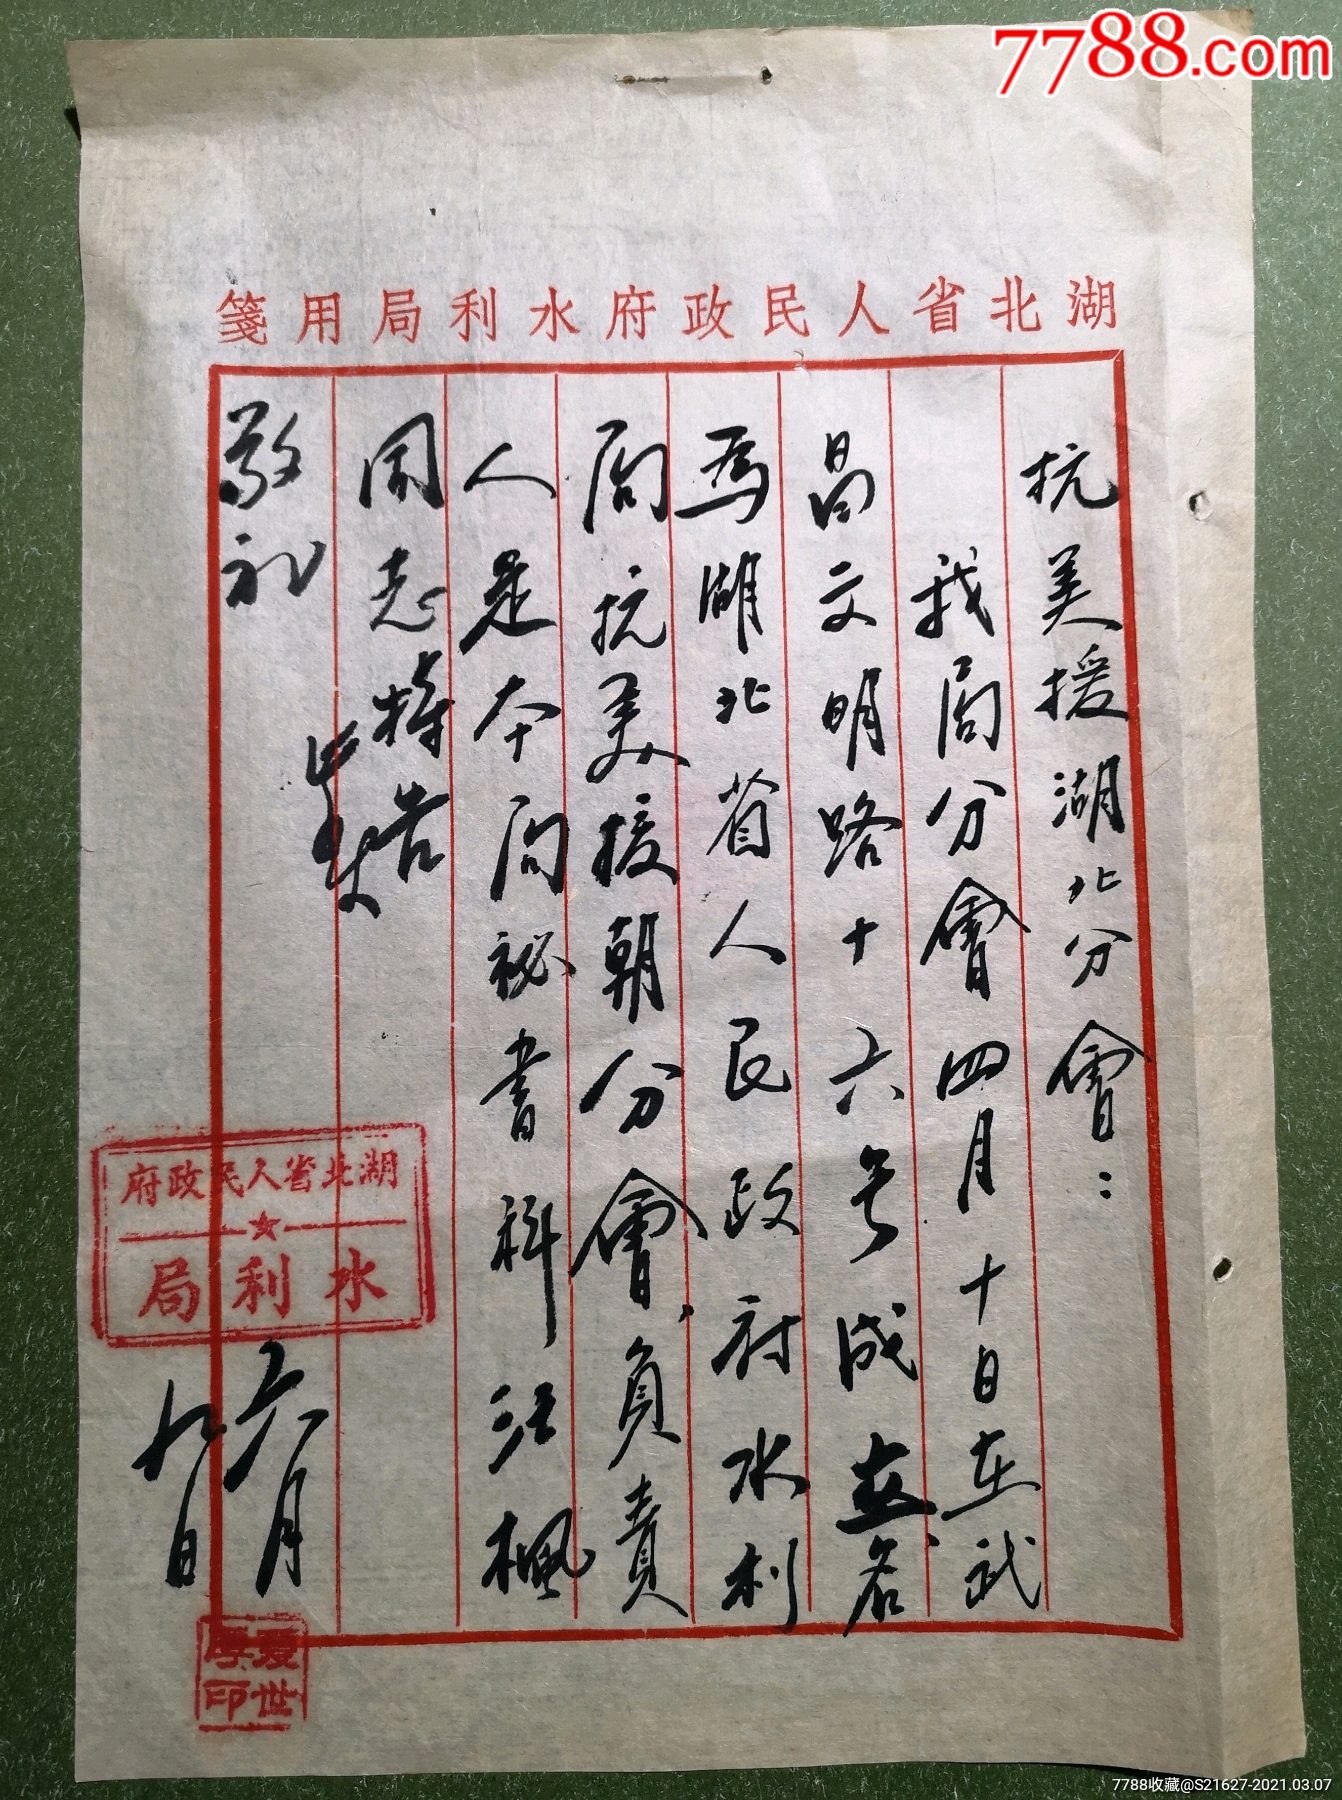 7788.com
湖北省人民政府水利局用箋
抗美援湖北分會：
我局分會四月十日在武
昌文明路十六号成立名
為湖北省人民政府水利
局抗美援朝分會、負責
人是本局祕書科汪楓
同志特告
此致
敬礼
湖北省人民政府
水利局
六月
九日
夏世厚印
7788收藏@S21627-2021.03.07